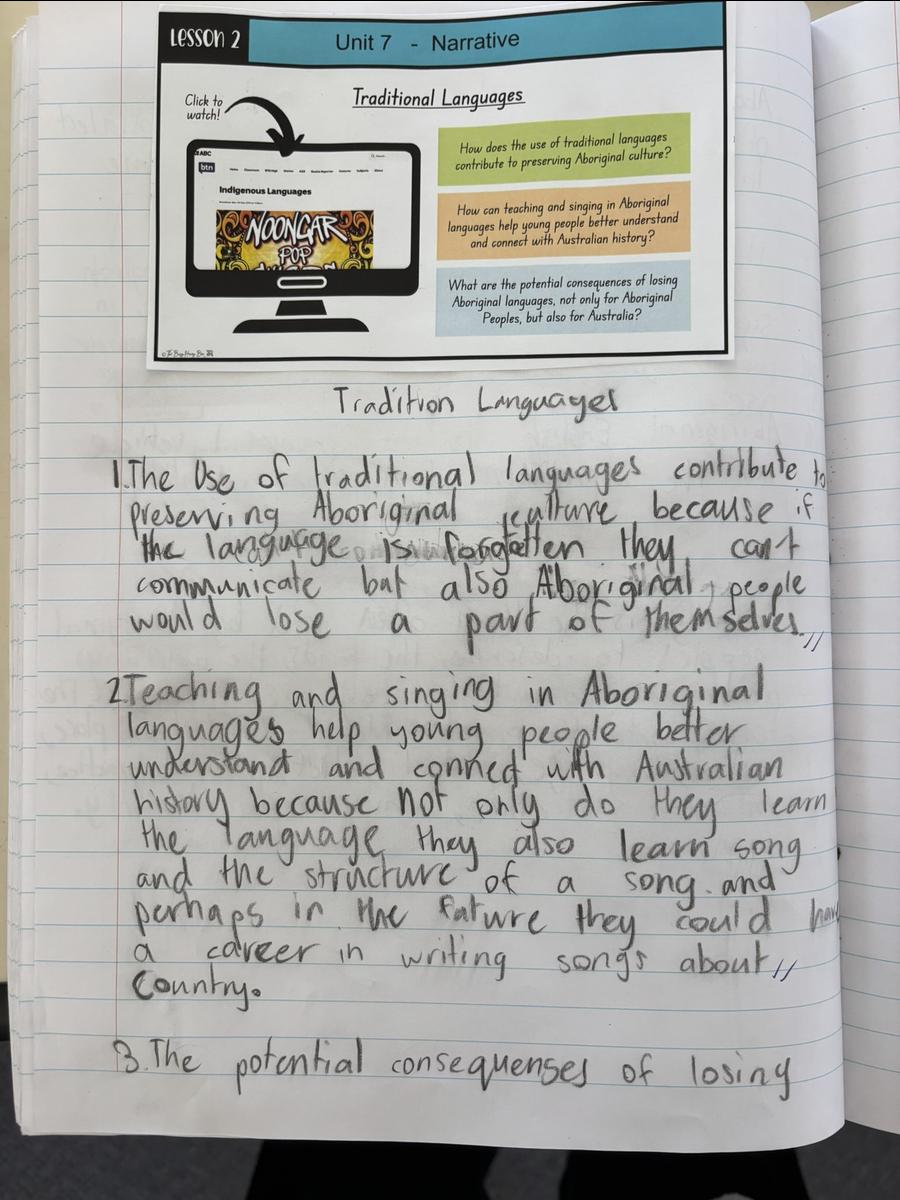 LESSON 2
Unit 7 - Narrative
Click to
watch!
Traditional Languages
ABC
btn
Indigenous Languages
NOONGAR
POP
How does the use of traditional languages
contribute to preserving Aboriginal culture?
How can teaching and singing in Aboriginal
languages help young people better understand
and connect with Australian history?
What are the potential consequences of losing
Aboriginal languages, not only for Aboriginal
Peoples, but also for Australia?
Tradition Languages
1. The Use of traditional languages contribute to
preserving Aboriginal culture because if
the language is forgotten they can't
communicate but also Aboriginal people
would lose a part of themselves.
2. Teaching and singing in Aboriginal
languages help young people better
understand and conned with Australian
history because not only do they learn
the language they also learn song
and the structure of a song. and
perhaps in the future they could have
a career in writing songs about
Country.
3. The potential consequenses of losing